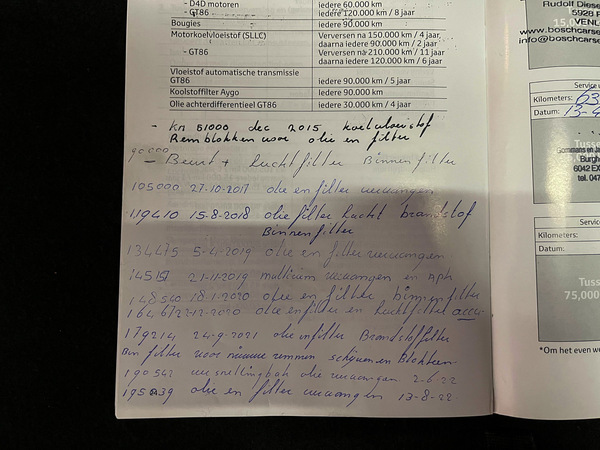 - D4D motoren iedere 60.000 km
- GT86 iedere 120.000 km / 8 jaar
Bougies iedere 90.000 km
Motorkoelvloeistof (SLLC) Verversen na 150.000 km / 4 jaar,
daarna iedere 90.000 km / 2 jaar
- GT86 Verversen na 210.000 km / 11 jaar
daarna iedere 120.000 km / 6 jaar
Vloeistof automatische transmissie
GT86 iedere 90.000 km / 5 jaar
Koolstoffilter Aygo iedere 90.000 km
Olie achterdifferentieel GT86 iedere 30.000 km / 4 jaar
- Km 61000 dec 2015 koelvloeistof
Remblokken voor olie en filter
90000
- Beurt + luchtfilter Binnenfilter
105000 27-10-2017 olie en filter vervangen
119410 15-8-2018 olie filter lucht brandstof
Binnenfilter
134475 5-4-2019 olie en filter vervangen
145151 21-11-2019 multiriem vervangen en Apk
148540 18-1-2020 olie en filter binnenfilter
164672 12-2020 olie en filter en luchtfilter accu
179214 24-9-2021 olie en filter Brandstoffilter
Bin filter voor nieuwe remmen schijven en Blokken
190542 versnellingbak olie vervangen 2-6-22
195039 olie en filter vervangen 13-8-22
Rudolf Diese
5928 R
VENL
www.boschcarse
info@boschcarse
Service
Kilometers: 63
Datum: 13-4
6042 EX
tel. 047
Service
Kilometers:
Datum:
Tuss
75,000
*Om het even we